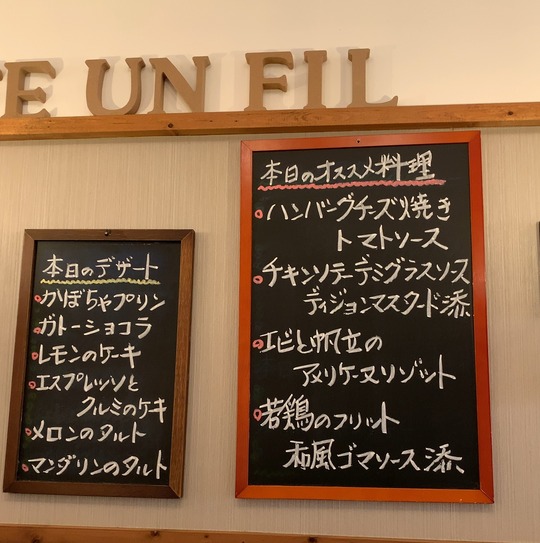 UN FIL
本日のデザート
かぼちゃプリン
ガトーショコラ
レモンのケーキ
エスプレッソと
クルミのケーキ
メロンのタルト
マンダリンのタルト
本日のオススメ料理
ハンバーグチーズ焼き
トマトソース
チキンソテーデミグラスソース
ディジョンマスタード添
エビと帆立の
アメリケーヌリゾット
若鶏のフリット
和風ゴマソース添